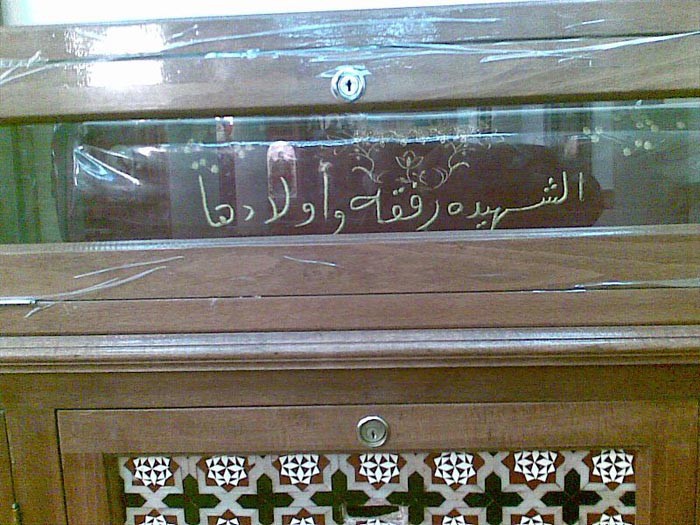 الشهيده رفقه وأولادها